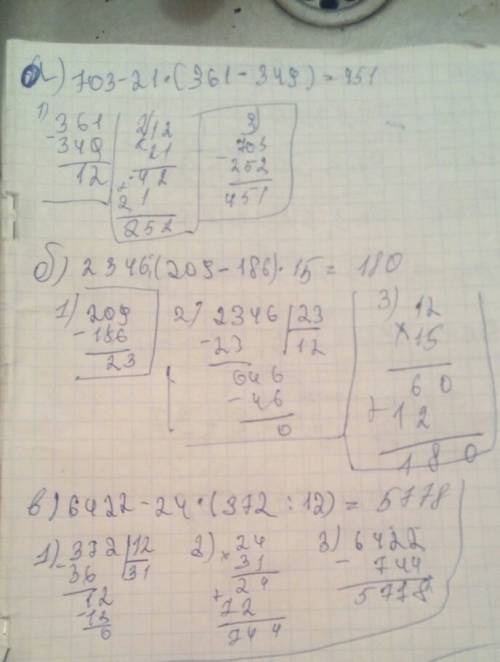 а) 703-21·(361-349)=451
1) 361
-349
12
2) 12
×21
+12
21
252
3)
703
-252
451
б) 2346:(209-186)·15=180
1) 209
-186
23
2) 2346 | 23
-23 12
646
-46
0
3) 12
×15
60
+12
180
в) 6422-24·(372:12)=5778
1) 372 | 12
-36 31
12
-12
0
2) 24
×31
+24
72
744
3) 6422
-744
5778